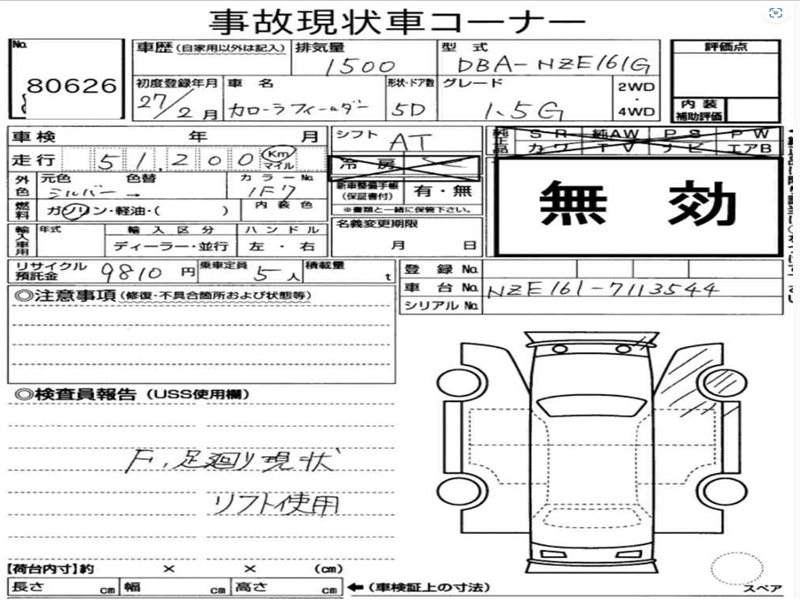 事故現状車コーナー
No.
80626
車歴(自家用以外は記入)
排気量
1500
型式
DBA-NZE161G
評価点
初度登録年月
27/2月
車名
カローラフィールダー
形状・ドア数
5D
グレード
1.5G
2WD
・
4WD
内装
補助評価
車検 年 月
シフト
AT
純正品
SR 純AW PS PW
カワ TV ナビ エアB
走行 51,200 Km マイル
冷房
無効
外色
元色 色替
シルバー →
カラーNo.
1F7
新車整備手帳
(保証書付)
有・無
※書類と一緒に保管下さい。
燃料
ガソリン・軽油・( )
内装色
名義変更期限
月 日
輸入車用
年式
輸入区分
ディーラー・並行
ハンドル
左・右
リサイクル
預託金
9810円
乗車定員
5人
積載量
t
登録No.
車台No.
NZE161-7113544
シリアルNo.
◎注意事項(修復・不具合箇所および状態等)
◎検査員報告(USS使用欄)
F,足廻り現状
リフト使用
【荷台内寸】約 × × (cm)
長さ cm 幅 cm 高さ cm
←(車検証上の寸法)
スペア